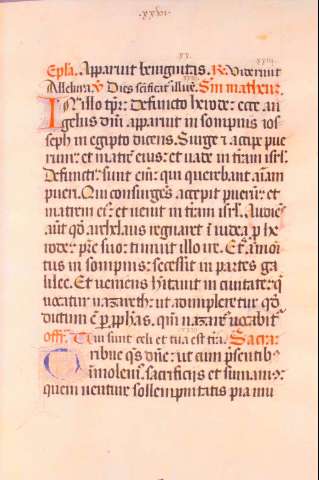 .xxvi.
xx.
Epła. Apparuit benignitas. R. Viderunt
xxiii.
xviii.
Alleluia. V. Dies scificat' illux̄. S̄m matheū.
In illo tp̄r: Defuncto herode: ecce an
gelus dn̄i apparuit in sompnis ios
seph in egipto dicens. Surge ⁊ accipe pue
rum: et matrē eius: et uade in trām isrł.
Defuncti sunt eīm qui querebant aīam
pueri. Qui consurgēs accepit puerū: et
matrem ei: et uenit in trām isrł. Audiēs
aut̄ qđ archelaus regnaret ī iudea ꝓ he
rode: pr̄e suo: timuit illo ire. Et āmoni
tus in sompnis: secessit in partes ga
lilee. Et ueniens hītauit in ciuitate: q̄
uocatur nazareth: ut adimpleretur qđ
dictum ē ꝑ ꝓphās. qm̄ nazareꝰ uocabit̄
xxiii.
Offr̄. Tui sunt celi et tua est tr̄a. Sacra.
Oribus qs̄ dn̄e: ut cum p̄sentib
īmolem. sacrificiis et sumam:
quem uenture sollempnitatis pia mu